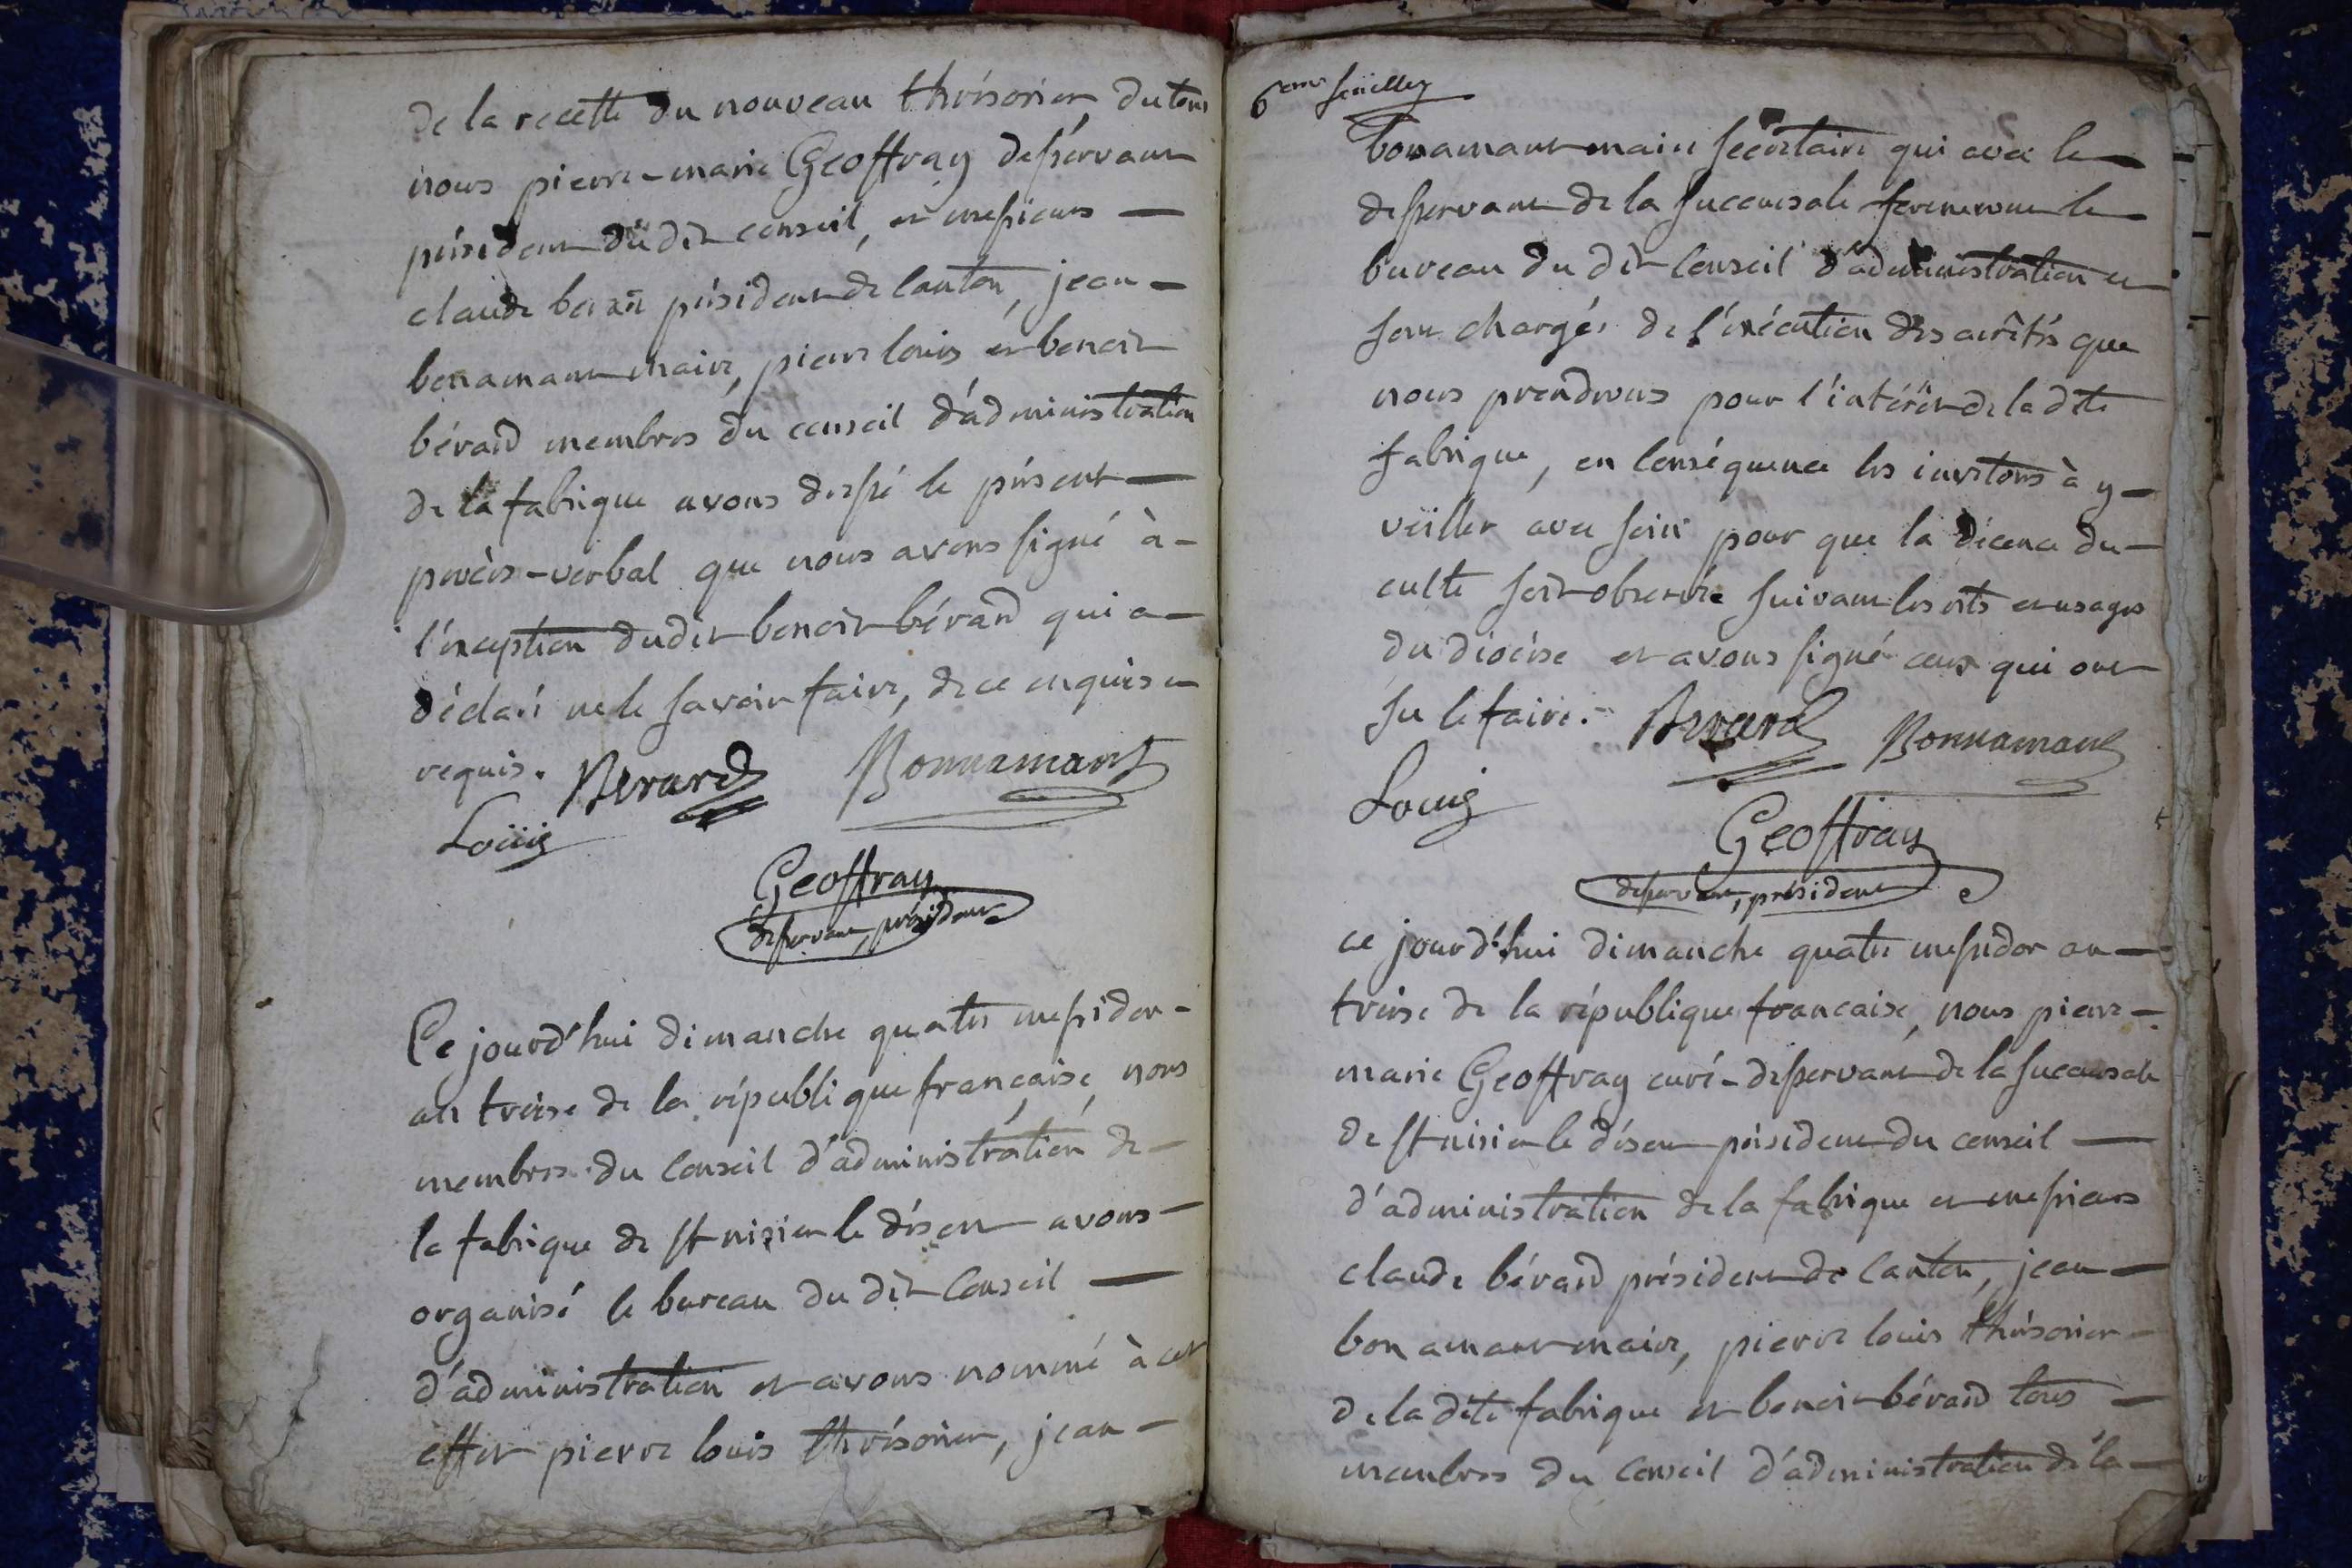 de la recette du nouveau thrésorier, du tout
nous pierre-marie Geoffray desservant
président dudit conseil, et messieurs —
claude berard président de canton, jean —
bonamant maire, pierre louis et benoit
bérard membres du conseil d'administration
de la fabrique avons dressé le présent —
procès-verbal que nous avons signé à -
l'éxception dudit benoit bérard qui a -
déclaré ne le savoir faire, de ce enquis et
requis. Berard Bonnamant
Loüis
Geoffray
desservant, président
Ce jourd'hui dimanche quatre messidor -
an treise de la république française, nous
membres du Conseil d'administration de -
la fabrique de St nisier le désert avons -
organisé le bureau du dit Conseil —
d'administration et avons nommé à cet
effet pierre louis thrésorier, jean -
6eme feüillet
bonamant maire secrétaire qui avec le —
desservant de la succursale formeront le
bureau du dit Conseil d'administration et
sont chargés de l'éxécution des arrêtés que
nous prendrons pour l'intérêt de la dite
fabrique, en Conséquence les invitons à y —
veiller avec soin pour que la décence du —
culte soit observée suivant les rits et usages
du diocèse et avons signé ceux qui ont
su le faire. - Berard Bonnamant
Louis
Geoffray
desservant, président
ce jourd'hui dimanche quatre messidor an —
treise de la république francaise, nous pierre -
marie Geoffray curé-desservant de la succursale
de St nisier le désert président du conseil —
d'administration de la fabrique et messieurs
claude bérard président de canton, jean —
bonamant maire, pierre louis thrésorier -
de la dite fabrique et benoit bérard tous —
membres du Conseil d'administration de la —